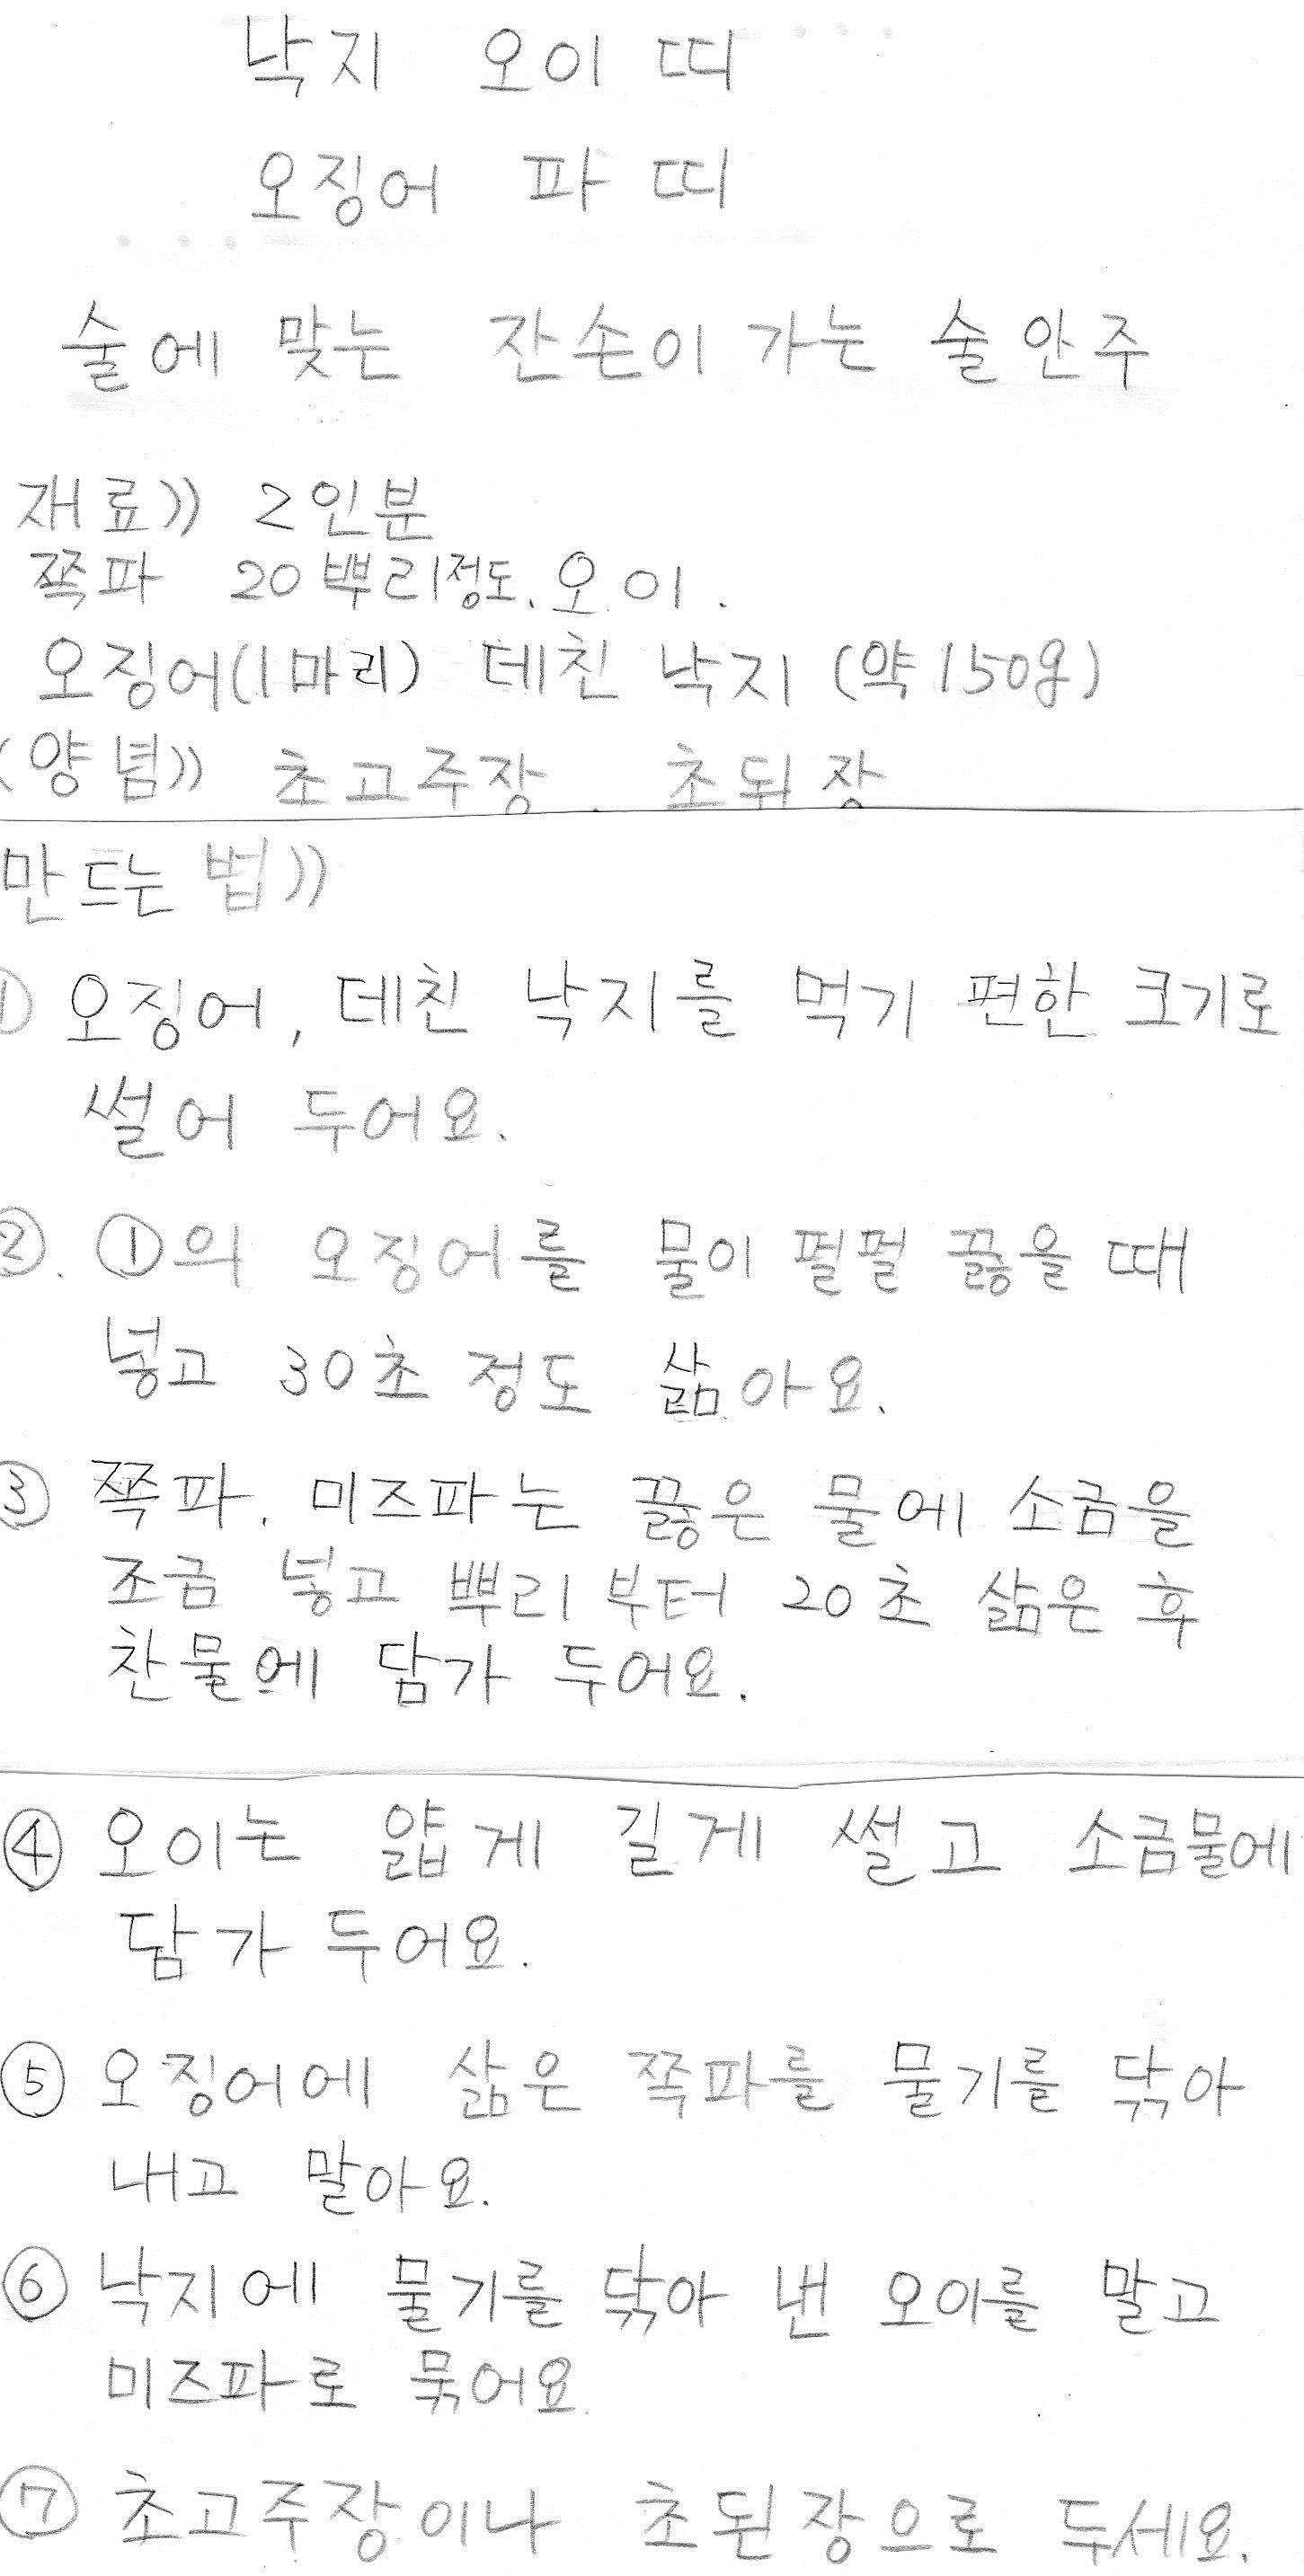 낙지 오이 띠
오징어 파 띠
술에 맞는 잔손이 가는 술안주
재료》 2인분
쪽파 20뿌리정도. 오이.
오징어(1마리) 데친 낙지 (약150g)
(양념》 초고주장. 초된장
만드는 법》
① 오징어, 데친 낙지를 먹기 편한 크기로
썰어 두어요.
②. ①의 오징어를 물이 펄펄 끓을 때
넣고 30초 정도 삶아요.
③ 쪽파. 미즈파는 끓은 물에 소금을
조금 넣고 뿌리부터 20초 삶은 후
찬물에 담가 두어요.
④ 오이는 얇게 길게 썰고 소금물에
담가 두어요.
⑤ 오징어에 삶은 쪽파를 물기를 닦아
내고 말아요.
⑥ 낙지에 물기를 닦아 낸 오이를 말고
미즈파로 묶어요.
⑦ 초고주장이나 초된장으로 두세요.